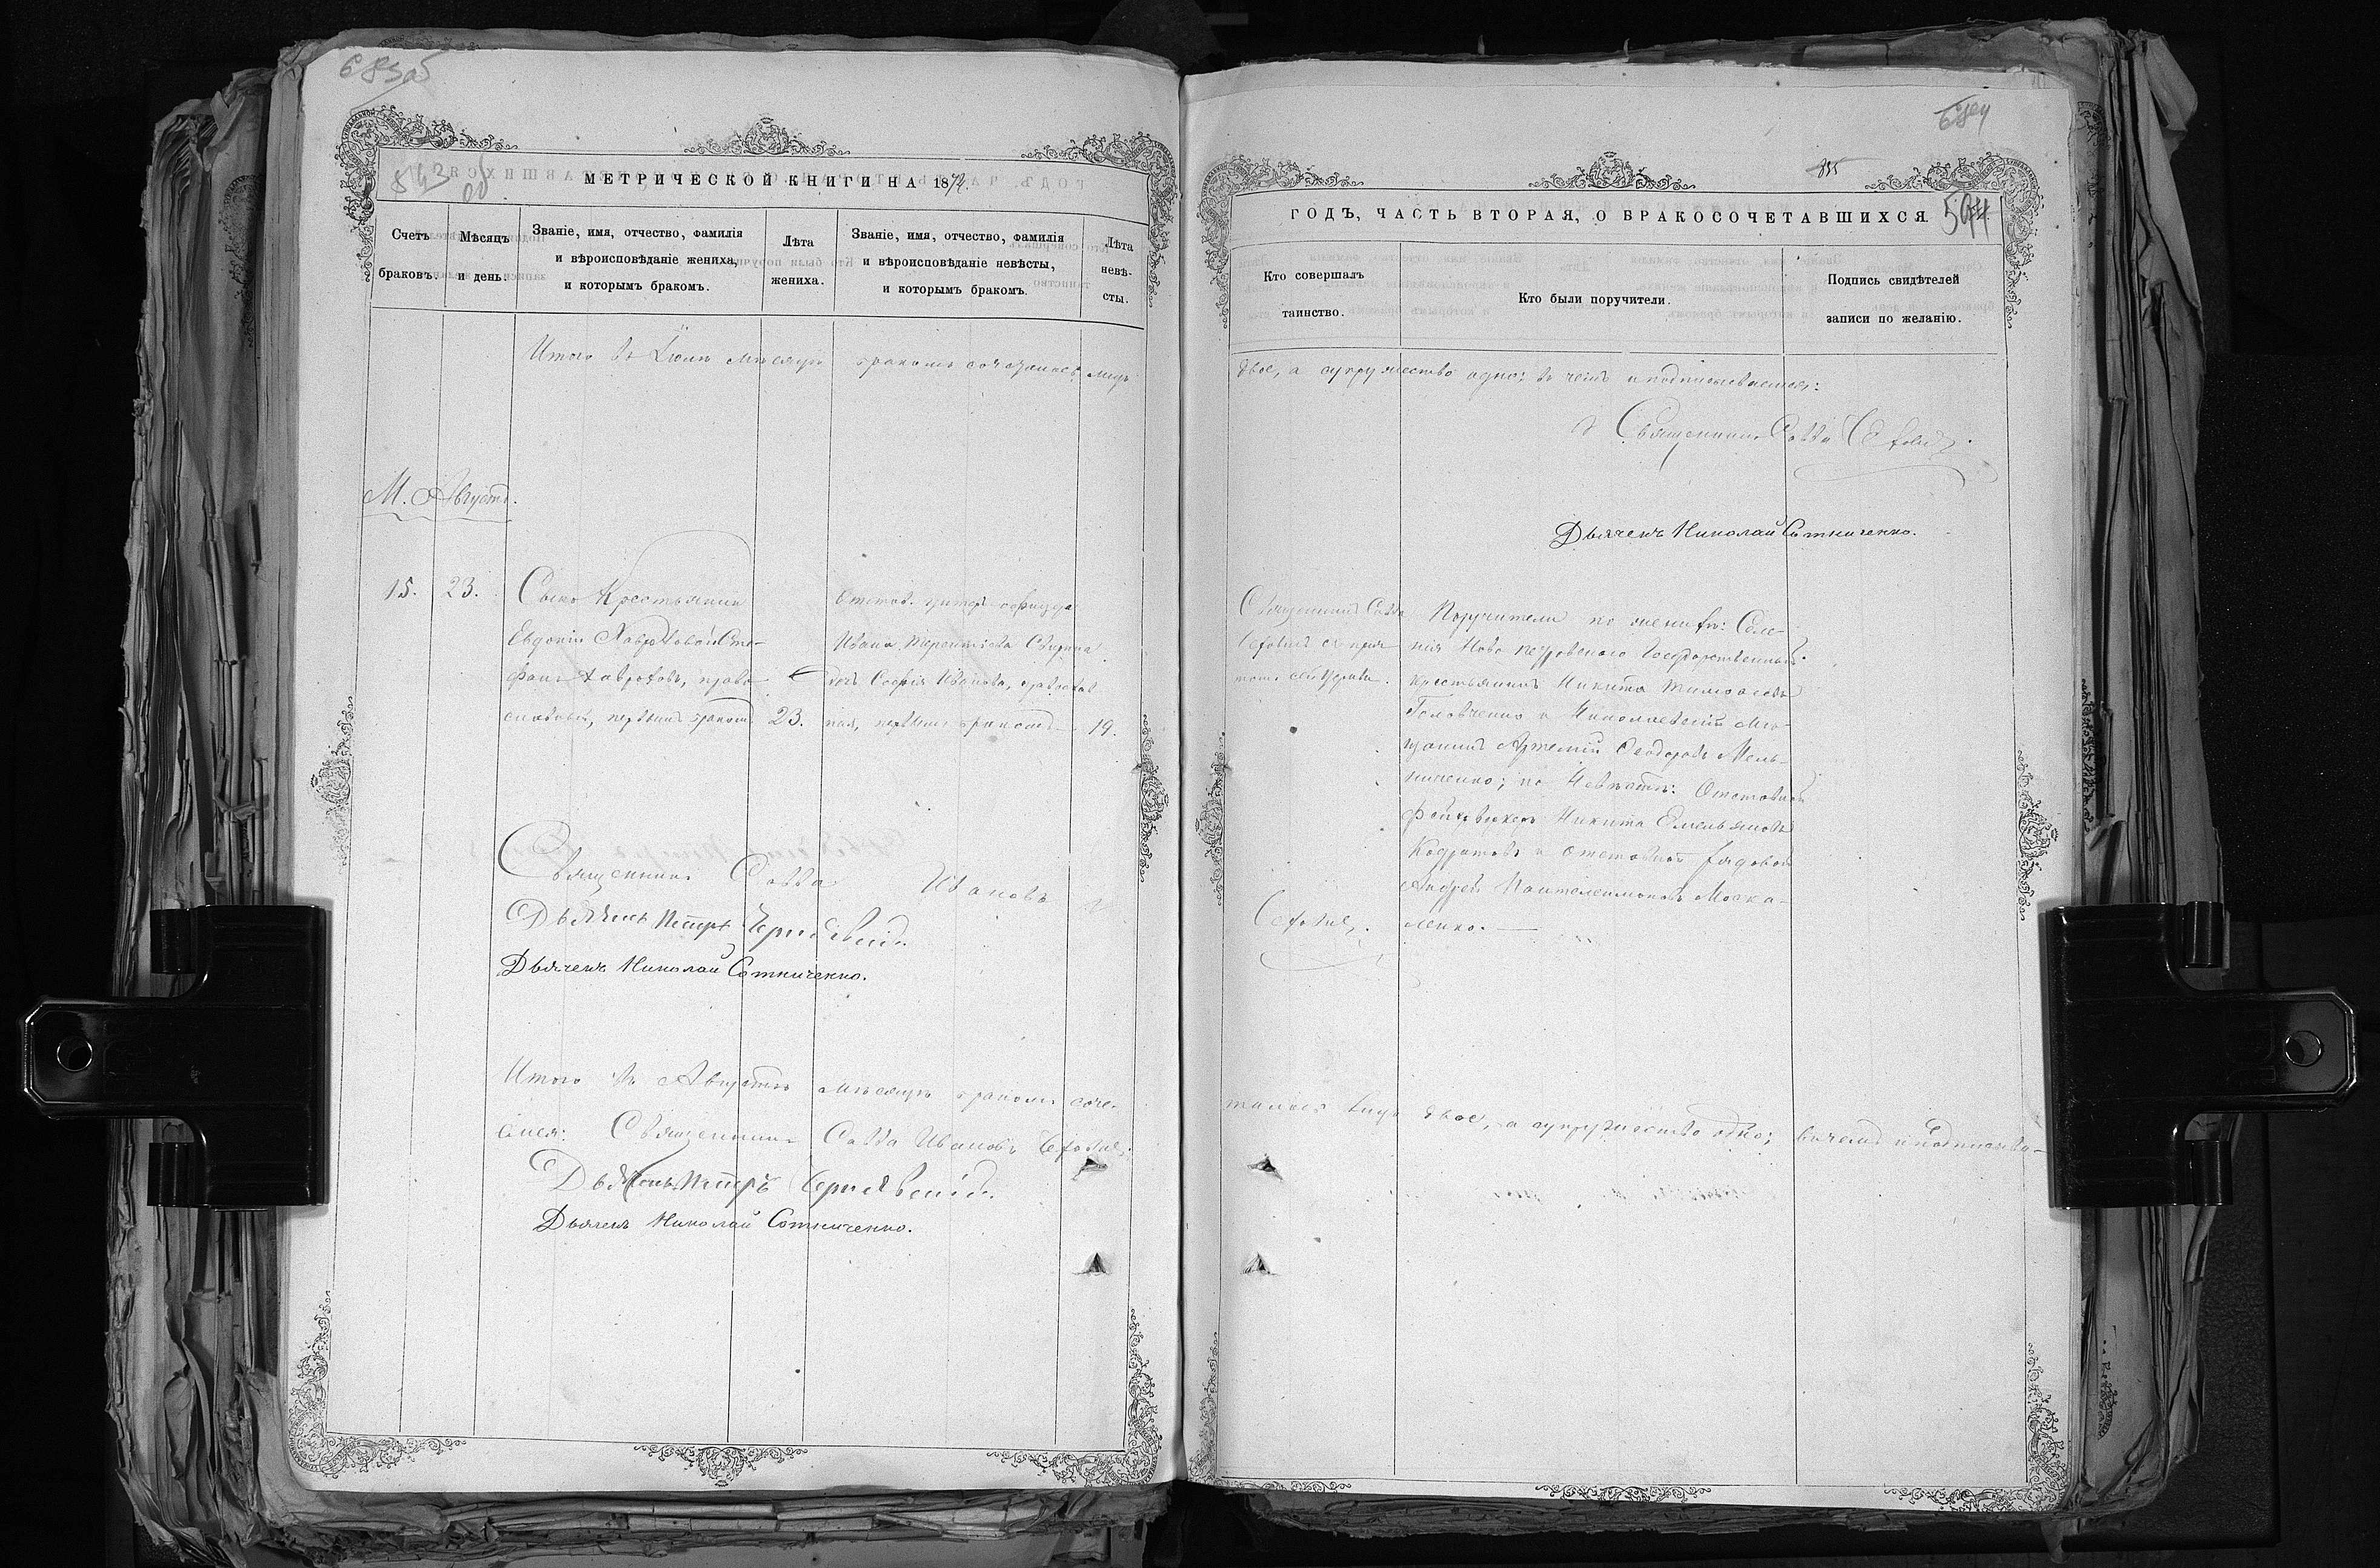 683об
843
об
МЕТРИЧЕСКОЙ КНИГИ НА 1872.
Счетъ
браковъ.
Мѣсяцъ
и день.
Званіе, имя, отчество, фамилія
и вѣроисповѣданіе жениха,
и которымъ бракомъ.
Лѣта
жениха.
Званіе, имя, отчество, фамилія
и вѣроисповѣданіе невѣсты,
и которымъ бракомъ.
Лѣта
невѣ-
сты.
Итого въ Іюлѣ мѣсяцѣ бракомъ сочеталось лицъ
М. Августъ.
15.
23.
Сынъ Крестьянки
Евдокіи Сте-
фанъ право
славный, первымъ бракомъ
23.
Отстав. унтеръ офицера
Ивана Терентіева
дочь Софія Иванова, православ
ная, первымъ бракомъ
19.
Священникъ Савва Ивановъ
Дьяконъ Петръ Чернявскій.
Дьячекъ Николай Сотниченко.
Итого въ Августѣ мѣсяцѣ бракомъ соче-
емся: Священникъ Савва Ивановъ
Дьяконъ Петръ Чернявскій.
Дьячекъ Николай Сотниченко.
684
835
594
ГОДЪ, ЧАСТЬ ВТОРАЯ, О БРАКОСОЧЕТАВШИХСЯ
Кто совершалъ
таинство.
Кто были поручители.
Подпись свидѣтелей
записи по желанію.
двое, а супружество одно; въ чемъ и подписываемся:
Священникъ Савва
Дьячекъ Николай Сотниченко.
Священникъ Савва
Поручители по женихѣ: Селе-
нія Ново петровскаго Государственный
крестьянинъ Никита Тимофеевъ
Головченко и Николаевскій мѣ-
щанинъ Артемій Феодоровъ Мель-
ниченко; по Невѣстѣ: Отставной
фейерверкеръ Никита Емельяновъ
Кодратовъ и отставной рядовой
Андрей Пантелеимоновъ Моска-
ленко.
талось лицъ двое, а супружество одно; въ чемъ и подписыва-